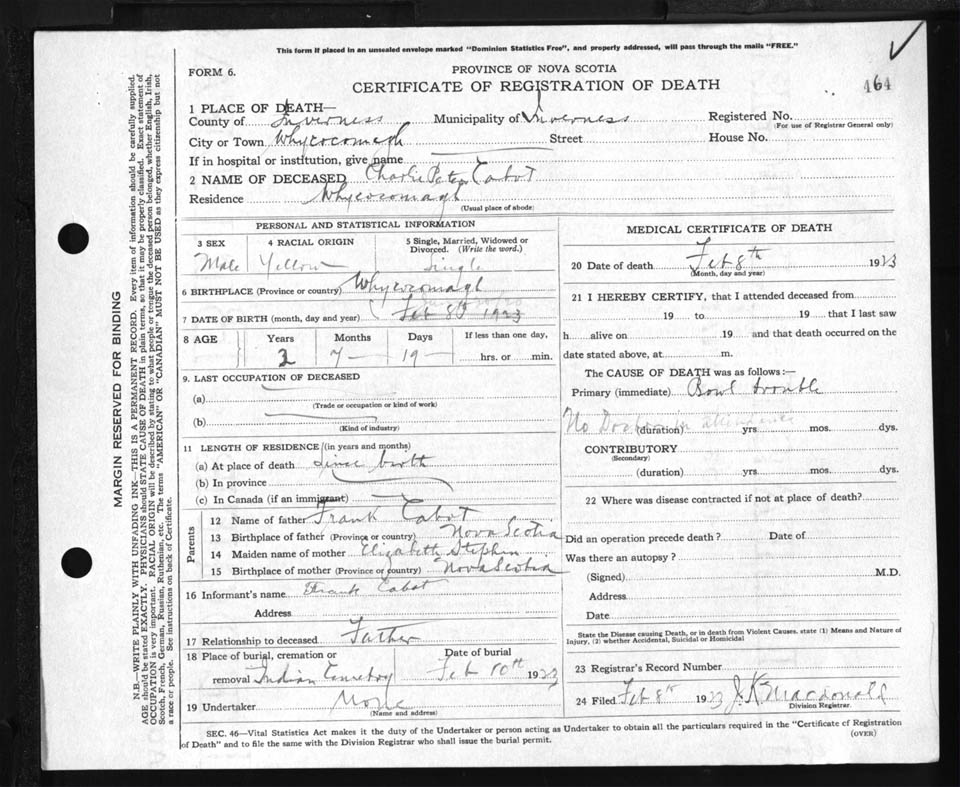 This form if placed in an unsealed envelope marked "Dominion Statistics Free", and properly addressed, will pass through the mails "FREE."
FORM 6.
PROVINCE OF NOVA SCOTIA
CERTIFICATE OF REGISTRATION OF DEATH
464
1 PLACE OF DEATH—
County of Inverness Municipality of Inverness Registered No.
(For use of Registrar General only)
City or Town Whycocomagh Street House No.
If in hospital or institution, give name
2 NAME OF DECEASED Charlie Peter Cabot
Residence Whycocomagh
(Usual place of abode)
PERSONAL AND STATISTICAL INFORMATION
3 SEX 4 RACIAL ORIGIN 5 Single, Married, Widowed or Divorced. (Write the word.)
Male Yellow Single
6 BIRTHPLACE (Province or country) Whycocomagh
7 DATE OF BIRTH (month, day and year) Feb 8th 1923
8 AGE Years Months Days If less than one day,
2 7 19 hrs. or min.
9. LAST OCCUPATION OF DECEASED
(a)
(Trade or occupation or kind of work)
(b)
(Kind of industry)
11 LENGTH OF RESIDENCE (in years and months)
(a) At place of death since birth
(b) In province
(c) In Canada (if an immigrant)
Parents
12 Name of father Frank Cabot
13 Birthplace of father (Province or country) Nova Scotia
14 Maiden name of mother Elizabeth Stephen
15 Birthplace of mother (Province or country) Nova Scotia
16 Informant's name Frank Cabot
Address
17 Relationship to deceased Father
18 Place of burial, cremation or Date of burial
removal Indian Cemetry Feb 10th 1923
19 Undertaker None
(Name and address)
MEDICAL CERTIFICATE OF DEATH
20 Date of death Feb 8th 1923
(Month, day and year)
21 I HEREBY CERTIFY, that I attended deceased from
19 to 19 that I last saw
h alive on 19 and that death occurred on the
date stated above, at m.
The CAUSE OF DEATH was as follows:—
Primary (immediate) Bowl trouble
No Doctor in attendance
(duration) yrs. mos. dys.
CONTRIBUTORY
(Secondary)
(duration) yrs. mos. dys.
22 Where was disease contracted if not at place of death?
Did an operation precede death? Date of
Was there an autopsy?
(Signed) M.D.
Address
Date
State the Disease causing Death, or in death from Violent Causes. state (1) Means and Nature of
Injury, (2) whether Accidental, Suicidal or Homicidal
23 Registrar's Record Number
24 Filed Feb 8th 1923 J. K. Macdonald
Division Registrar.
SEC. 46—Vital Statistics Act makes it the duty of the Undertaker or person acting as Undertaker to obtain all the particulars required in the "Certificate of Registration
of Death" and to file the same with the Division Registrar who shall issue the burial permit.
(OVER)
MARGIN RESERVED FOR BINDING
N.B.—WRITE PLAINLY WITH UNFADING INK—THIS IS A PERMANENT RECORD. Every item of information should be carefully supplied.
AGE should be stated EXACTLY. PHYSICIANS should STATE CAUSE OF DEATH in plain terms, so that it may be properly classified. Exact statement of
OCCUPATION is very important. RACIAL ORIGIN will be described by stating to what people or tongue the deceased person belonged, whether English, Irish,
Scotch, French, German, Russian, Ruthenian, etc. The terms "AMERICAN" OR "CANADIAN" MUST NOT BE USED as they express citizenship but not
a race or people. See instructions on back of Certificate.